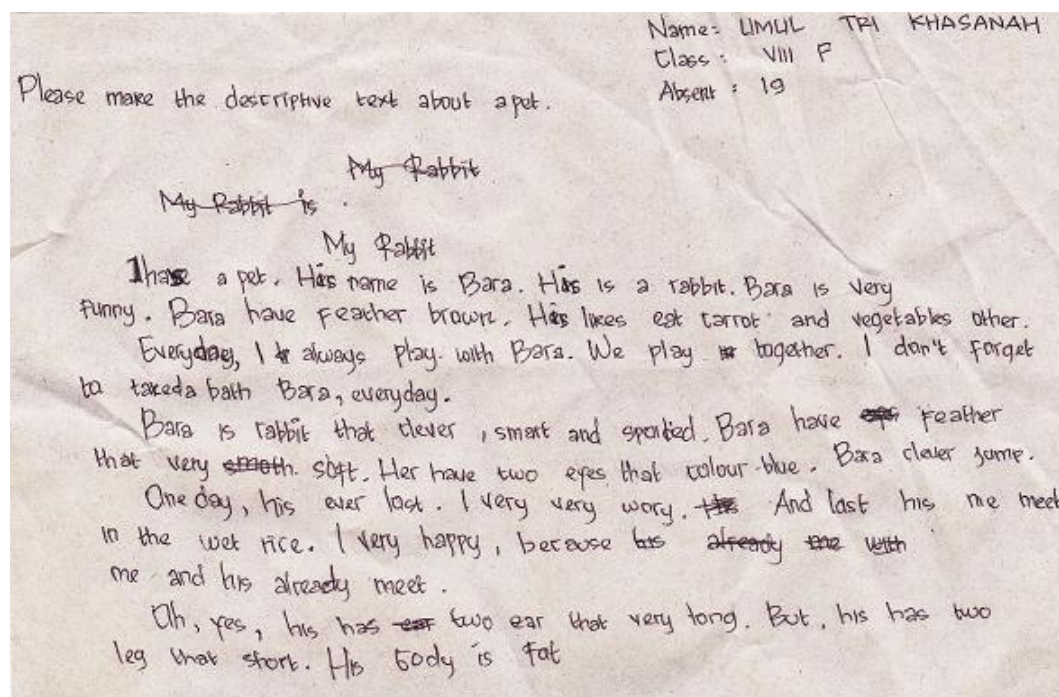 Name: UMUL TRI KHASANAH
Class : VIII F
Absent : 19
Please make the descriptive text about a pet.
My Rabbit
My Rabbit is .
My Rabbit
I have a pet. His name is Bara. His is a rabbit. Bara is very
funny. Bara have feather brown. His likes eat carrot and vegetables other.
Everyday, I always play with Bara. We play together. I don't forget
to take a bath Bara, everyday.
Bara is rabbit that clever, smart and spoiled. Bara have feather
that very smoth soft. Her have two eyes that colour blue. Bara clever jump.
One day, his ever lost. I very very wory. And last his me meet
in the wet rice. I very happy, because his already me with
me and his already meet.
Oh, yes, his has ear two ear that very long. But, his has two
leg that short. His body is fat